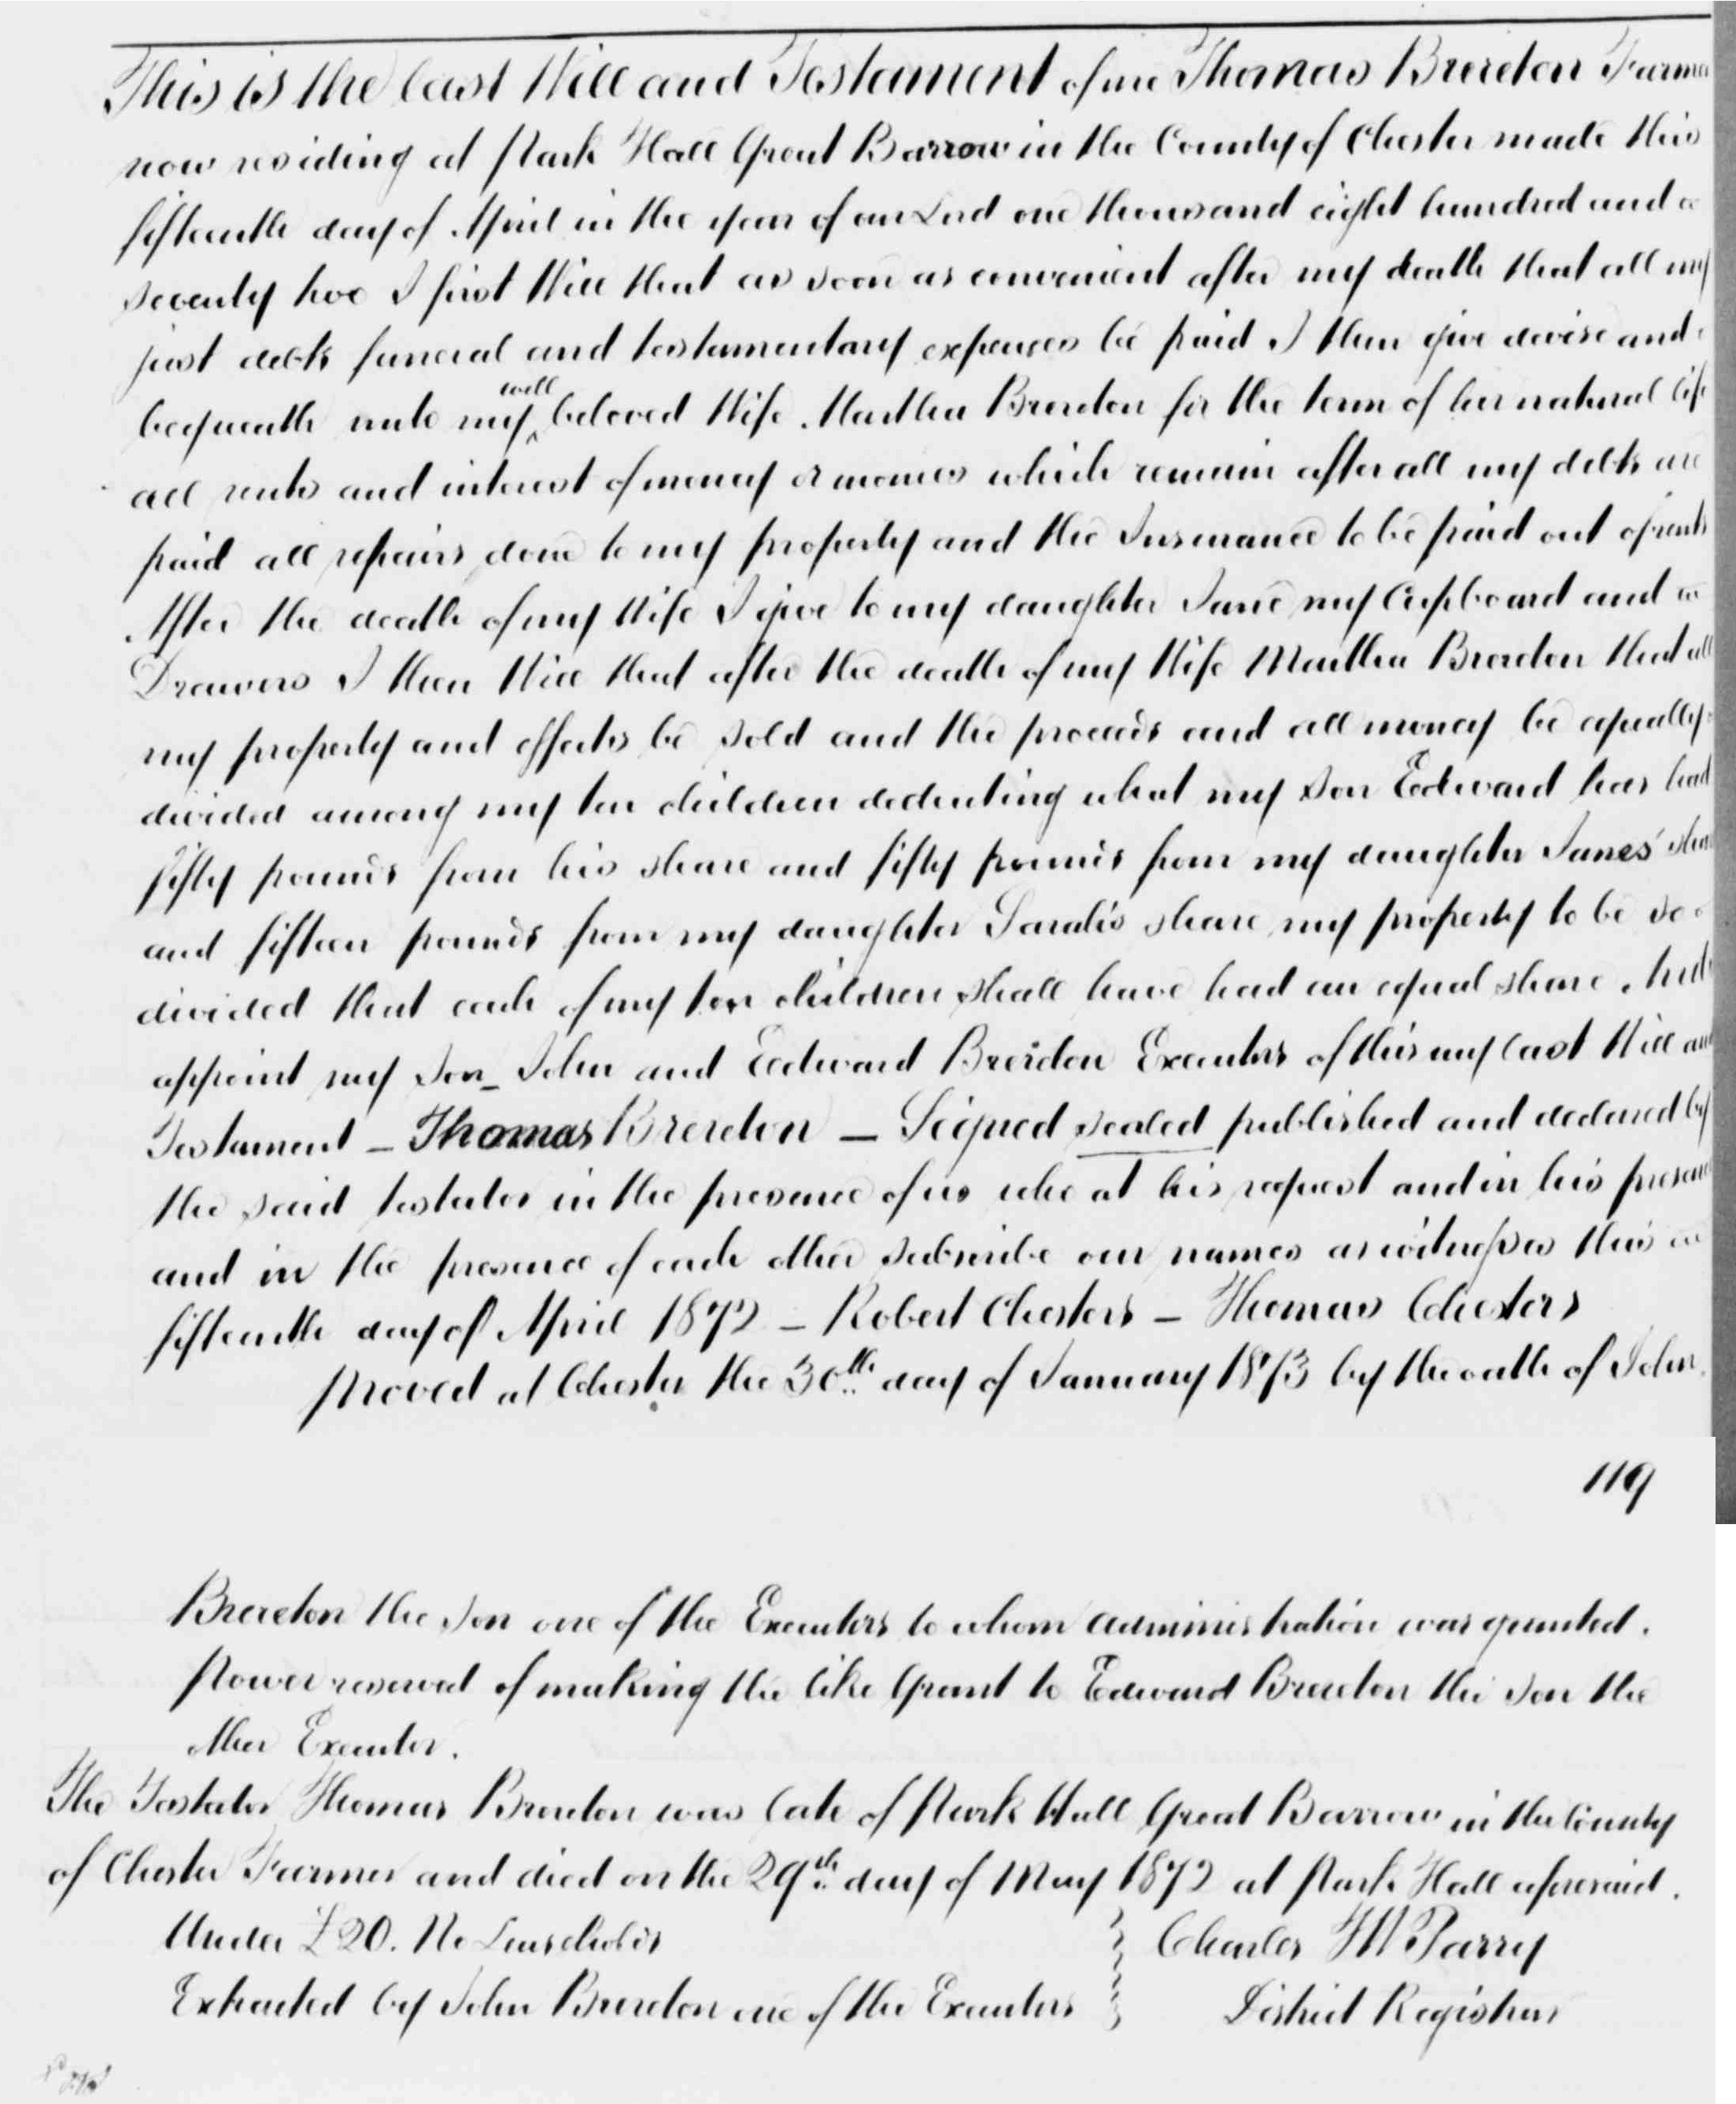 This is the last Will and Testament of me Thomas Brereton Farmer
now residing at Park Hall Great Barrow in the County of Chester made this
fifteenth day of April in the year of our Lord one thousand eight hundred and
seventy two I first Will that as soon as convenient after my death that all my
just debts funeral and testamentary expenses be paid I then give devise and
bequeath unto my well beloved Wife Martha Brereton for the term of her natural life
all rents and interest of money or monies which remain after all my debts are
paid all repairs done to my property and the Insurance to be paid out of rents
After the death of my Wife I give to my daughter Jane my Cupboard and
Drawers I then Will that after the death of my Wife Martha Brereton that all
my property and effects be sold and the proceeds and all money be equally
divided among my ten children deducting what my son Edward has had
fifty pounds from his share and fifty pounds from my daughter Janes' share
and fifteen pounds from my daughter Sarah's share my property to be so
divided that each of my ten children shall have had an equal share And
appoint my Son_ John and Edward Brereton Executors of this my last Will and
Testament – Thomas Brereton – Signed sealed published and declared by
the said testator in the presence of us who at his request and in his presence
and in the presence of each other subscribe our names as witnesses this
fifteenth day of April 1872 – Robert Chesters – Thomas Chesters
Proved at Chester the 30th day of January 1873 by the oath of John
119
Brereton the Son one of the Executors to whom administration was granted.
Power reserved of making the like Grant to Edward Brereton the Son the
other Executor.
The Testator Thomas Brereton was late of Park Hall Great Barrow in the County
of Chester Farmer and died on the 29th day of May 1872 at Park Hall aforesaid.
Under £20. No Leaseholds
Charles FW Parry
Extracted by John Brereton one of the Executors
District Registrar